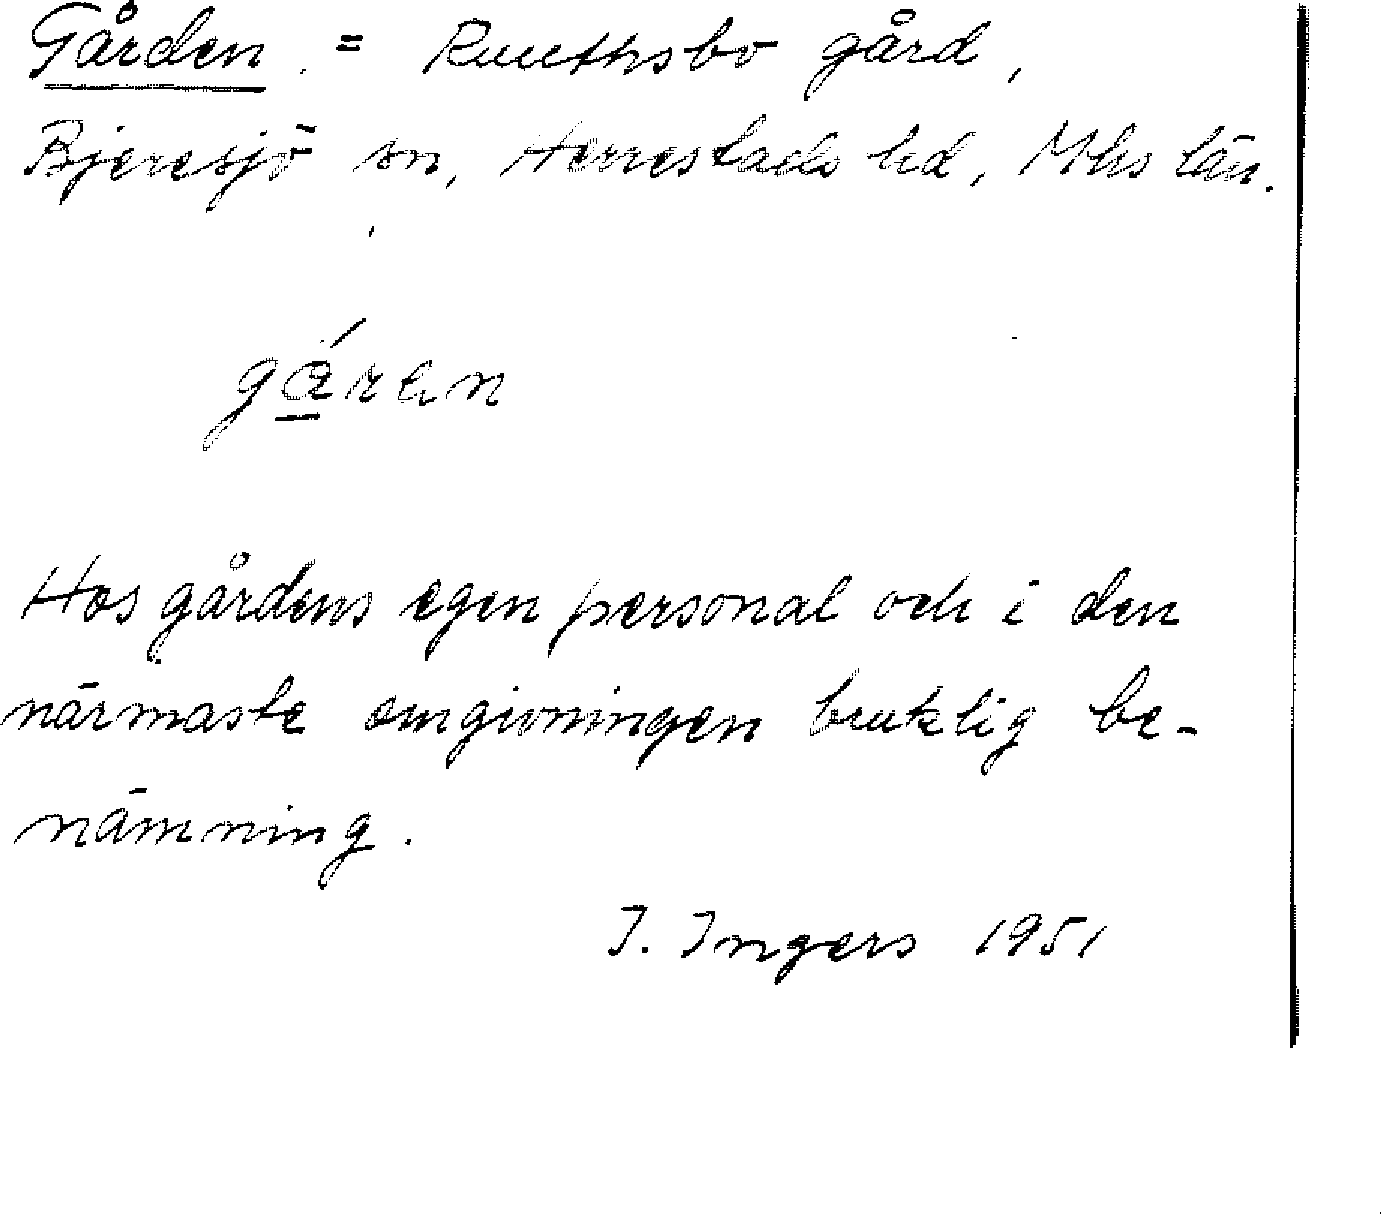 Gården = Ruuthsbo gård,
Bjeresjö sn, Herrestads hd, Mhs län.
Hos gårdens egen personal och i den
närmaste omgivningen bruklig be-
nämning.
I. Ingers 1951